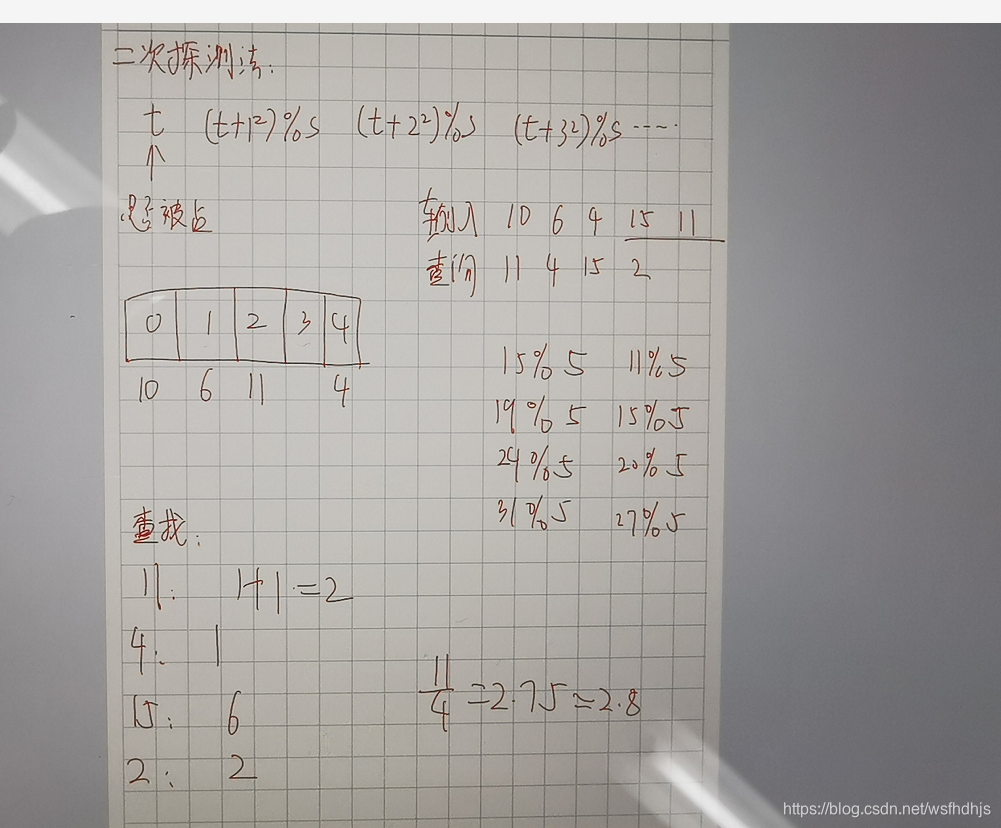 二次探测法:
t (t+1²)%s (t+2²)%s (t+3²)%s ----·
↑
是否被占
输入 10 6 4 15 11
查询 11 4 15 2
0 1 2 3 4
10 6 11 4
15%5 11%5
19%5 15%5
24%5 20%5
31%5 27%5
查找:
11: 1+1=2
4: 1
15: 6
2: 2
11/4=2.75≈2.8
https://blog.csdn.net/wsfhdhjs